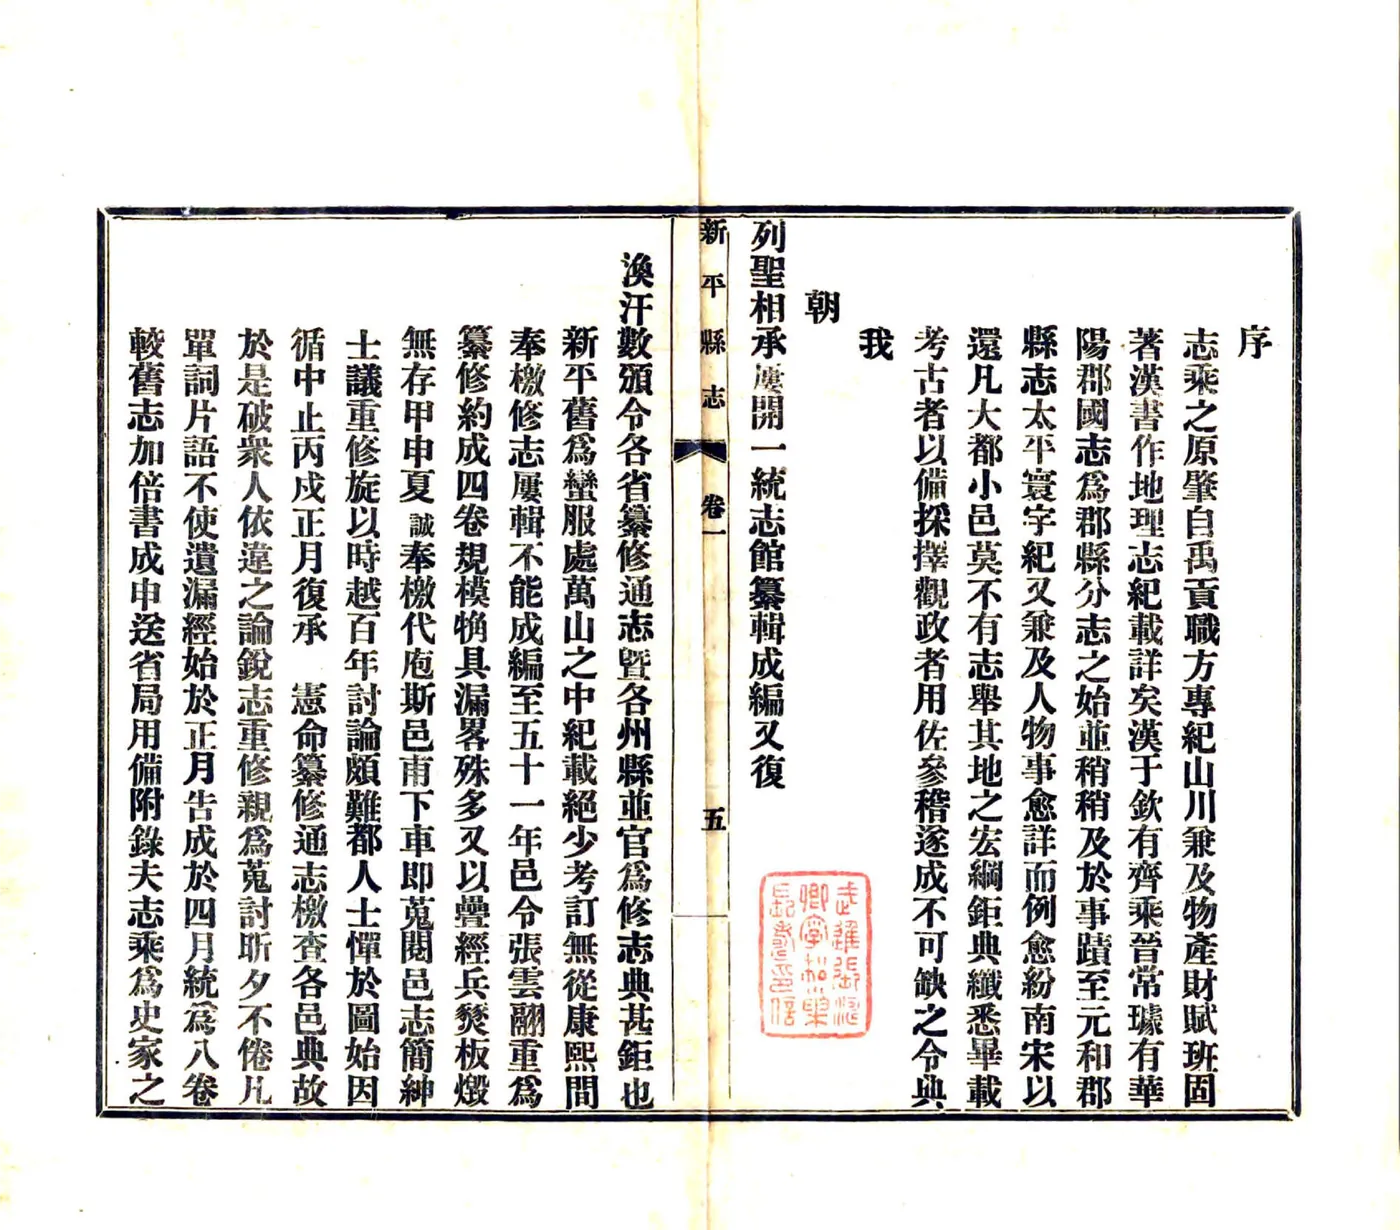 序
志乘之原肇自禹貢職方專紀山川兼及物產財賦班固
著漢書作地理志紀載詳矣漢于欽有齊乘晉常璩有華
陽郡國志爲郡縣分志之始並稍稍及於事蹟至元和郡
縣志太平寰宇紀又兼及人物事愈詳而例愈紛南宋以
還凡大都小邑莫不有志舉其地之宏綱鉅典纖悉畢載
考古者以備採擇觀政者用佐參稽遂成不可缺之令典
我
朝
列聖相承屢開一統志館纂輯成編又復
新平縣志 卷一 五
渙汗數頒令各省纂修通志曁各州縣並官爲修志典甚鉅也
新平舊爲蠻服處萬山之中紀載絕少考訂無從康熙間
奉檄修志屢輯不能成編至五十一年邑令張雲翮重爲
纂修約成四卷規模犓具漏畧殊多又以疊經兵燹板燬
無存甲申夏誠奉檄代庖斯邑甫下車即蒐閱邑志簡紳
士議重修旋以時越百年討論頗難都人士憚於圖始因
循中止丙戌正月復承 憲命纂修通志檄查各邑典故
於是破衆人依違之論銳志重修親爲蒐討昕夕不倦凡
單詞片語不使遺漏經始於正月告成於四月統爲八卷
較舊志加倍書成申送省局用備附錄夫志乘爲史家之